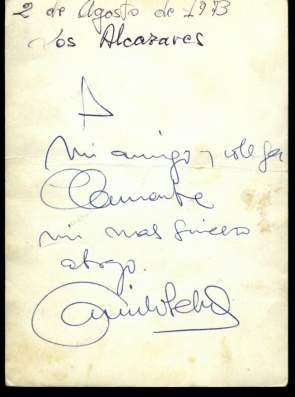 2 de Agosto de 1973
Los Alcazares
A
mi amigo y colega
Clemente
mi mas sincero
abrazo.